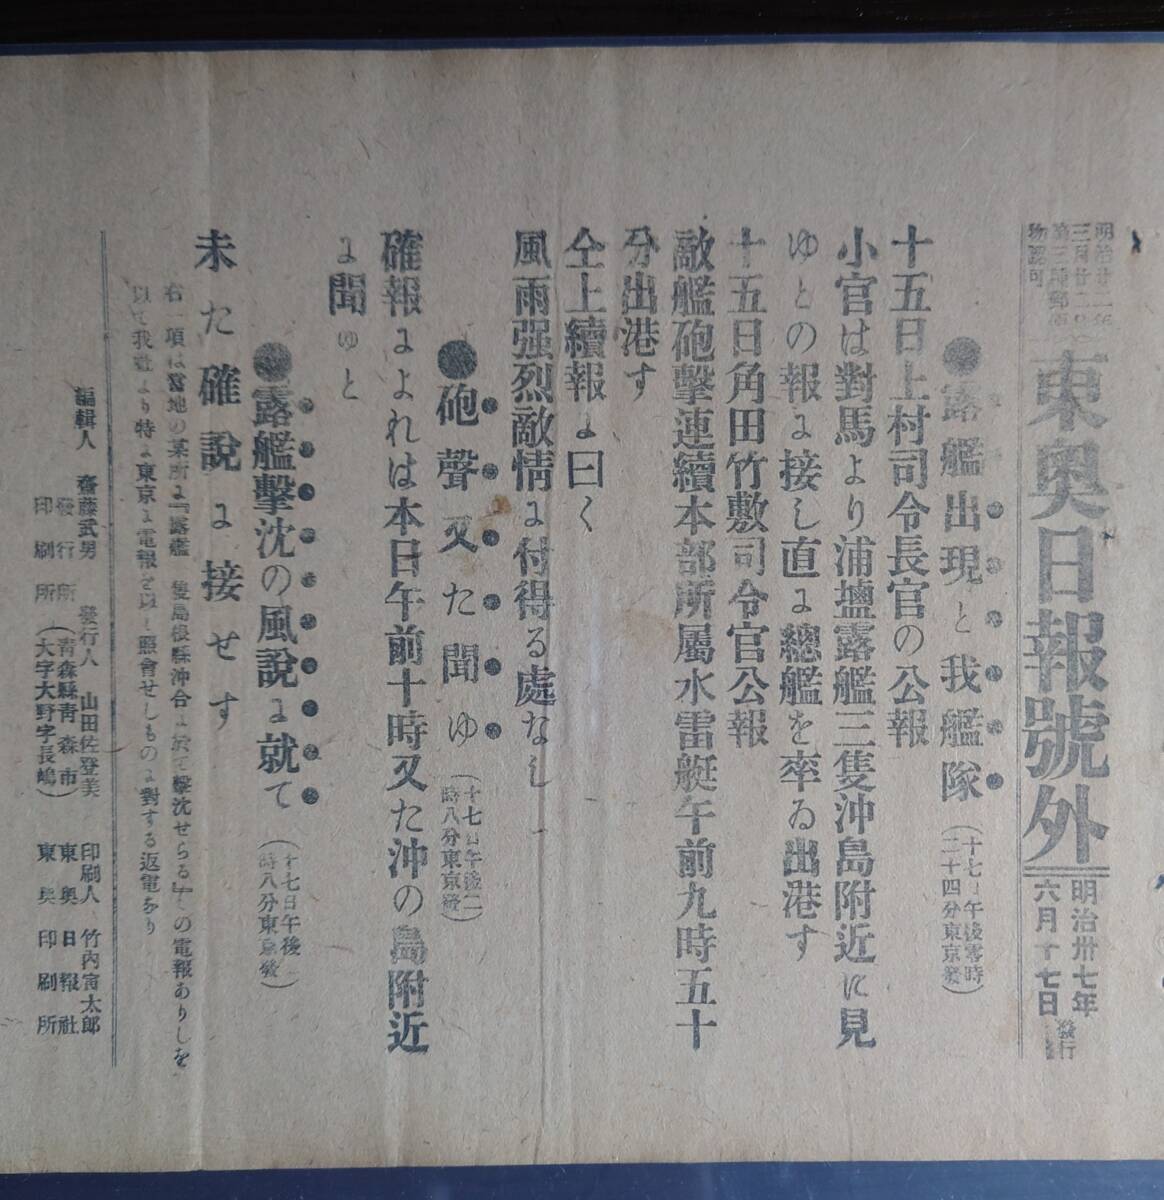 明治廿二年
三月廿二日
第三種郵便
物認可
東奥日報號外
明治卅七年
六月十七日
發行
●露艦出現と我艦隊
(十七日午後零時
二十四分東京發)
十五日上村司令長官の公報
小官は對馬より浦塩露艦三隻沖島附近に見
ゆとの報に接し直に總艦を率ゐ出港す
十五日角田竹敷司令官公報
敵艦砲擊連續本部所屬水雷艇午前九時五十
分出港す
仝上續報に曰く
風雨强烈敵情に付得る處なし
●砲聲又た聞ゆ
(十七日午後二
時八分東京發)
確報によれは本日午前十時又た沖の島附近
に聞ゆと
●露艦擊沈の風說に就て
(十七日午後
時八分東京發)
未た確說に接せす
右一項は當地の某所に『露艦一隻島根縣沖合に於て擊沈せらる』との電報ありしを
以て我社より特に東京に電報を以て照會せしものに對する返電なり
編輯人 齋藤武男 發行人 山田佐登美 印刷人 竹內寅太郎
發行所 (青森縣青森市 東奥日報社
印刷所 大字大野字長嶋) 東奥印刷所